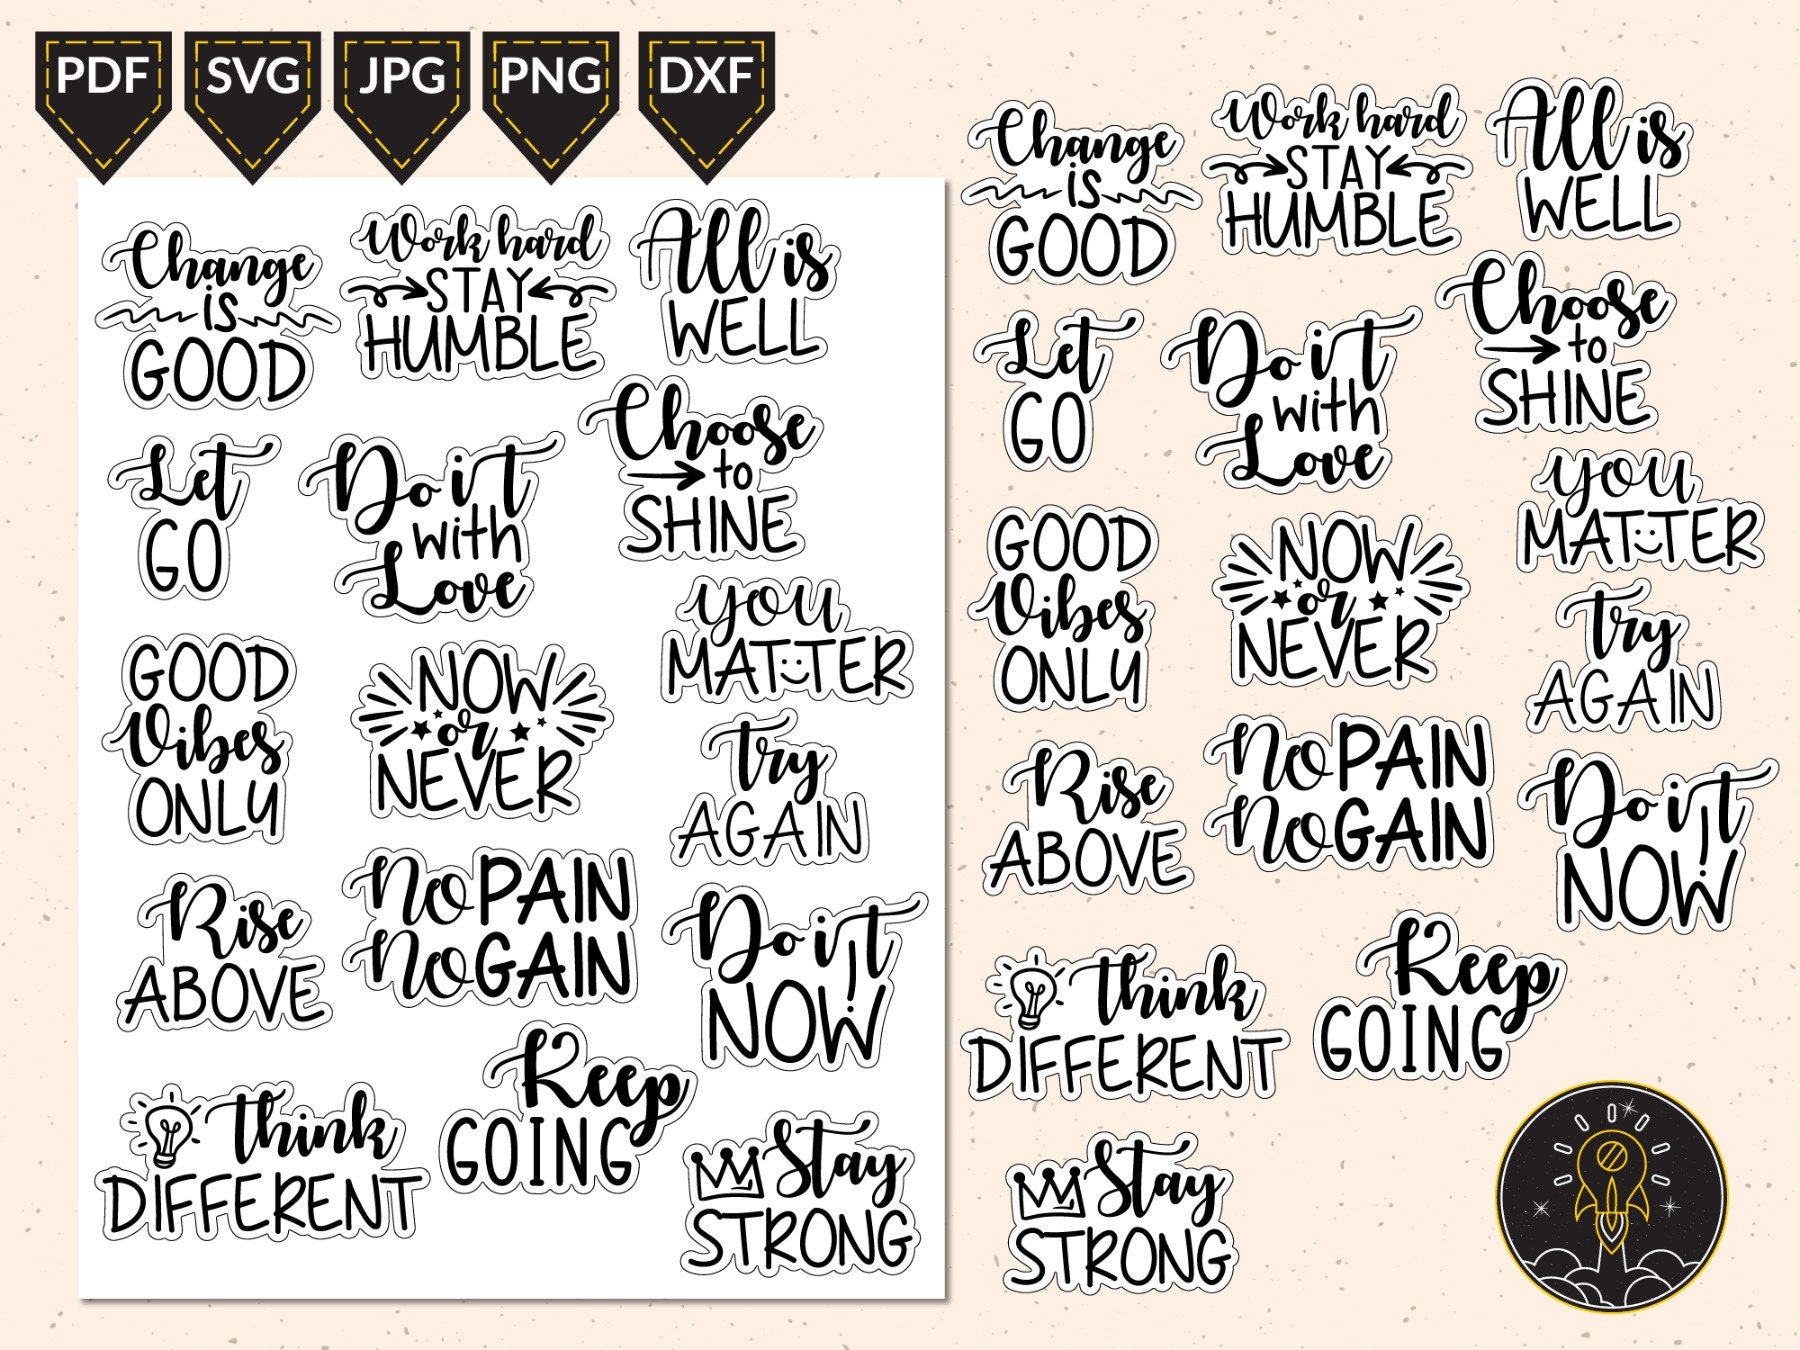 PDF SVG JPG PNG DXF
Change
is
GOOD
Work hard
STAY
HUMBLE
All is
WELL
Let
GO
Do it
with
Love
Choose
to
SHINE
you
MATTER
GOOD
Vibes
ONLY
NOW
or
NEVER
try
AGAIN
Rise
ABOVE
No PAIN
No GAIN
Do it
NOW
think
DIFFERENT
Keep
GOING
Stay
STRONG
Change
is
GOOD
Work hard
STAY
HUMBLE
All is
WELL
Let
GO
Do it
with
Love
Choose
to
SHINE
you
MATTER
GOOD
Vibes
ONLY
NOW
or
NEVER
try
AGAIN
Rise
ABOVE
No PAIN
No GAIN
Do it
NOW
think
DIFFERENT
Keep
GOING
Stay
STRONG